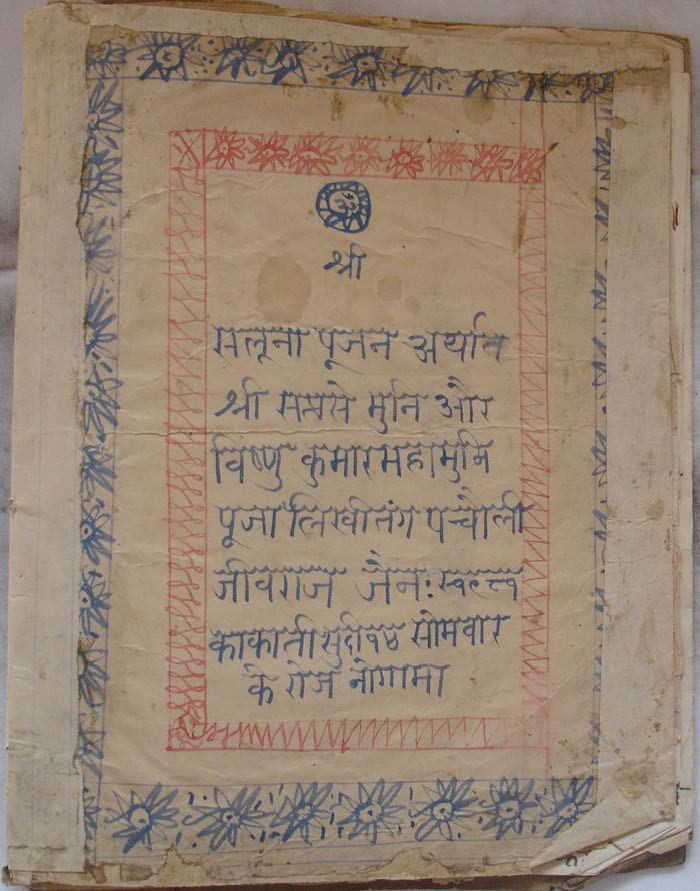 श्री
सलूना पूजन अर्थात
श्री सप्तसे मुनि और
विष्णु कुमार महामुनि
पूजा लिखीतंग पन्चौली
जीवराज जैन:
काकाती सुदी सोमवार
के रोज नोगामा